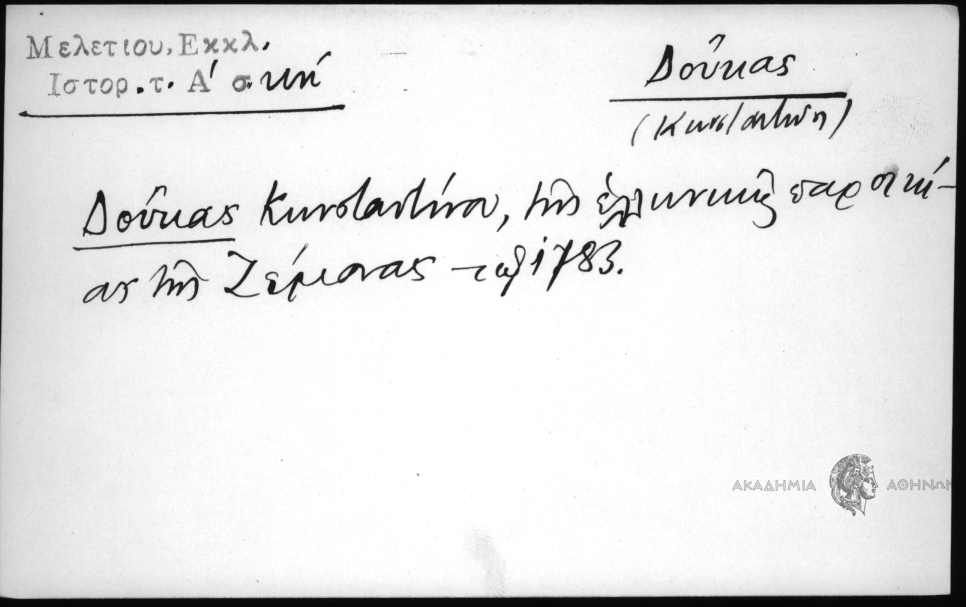 Μελετιου, Εκκλ.
Ιστορ. τ. Α' σ. κη'
Δούκας
(Κωνσταντίνου)
Δούκας Κωνσταντίνου, τῆς ἑλληνικῆς παροικί-
ας τῆς Ζέμονας τῷ 1783.
ΑΚΑΔΗΜΙΑ ΑΘΗΝΩΝ